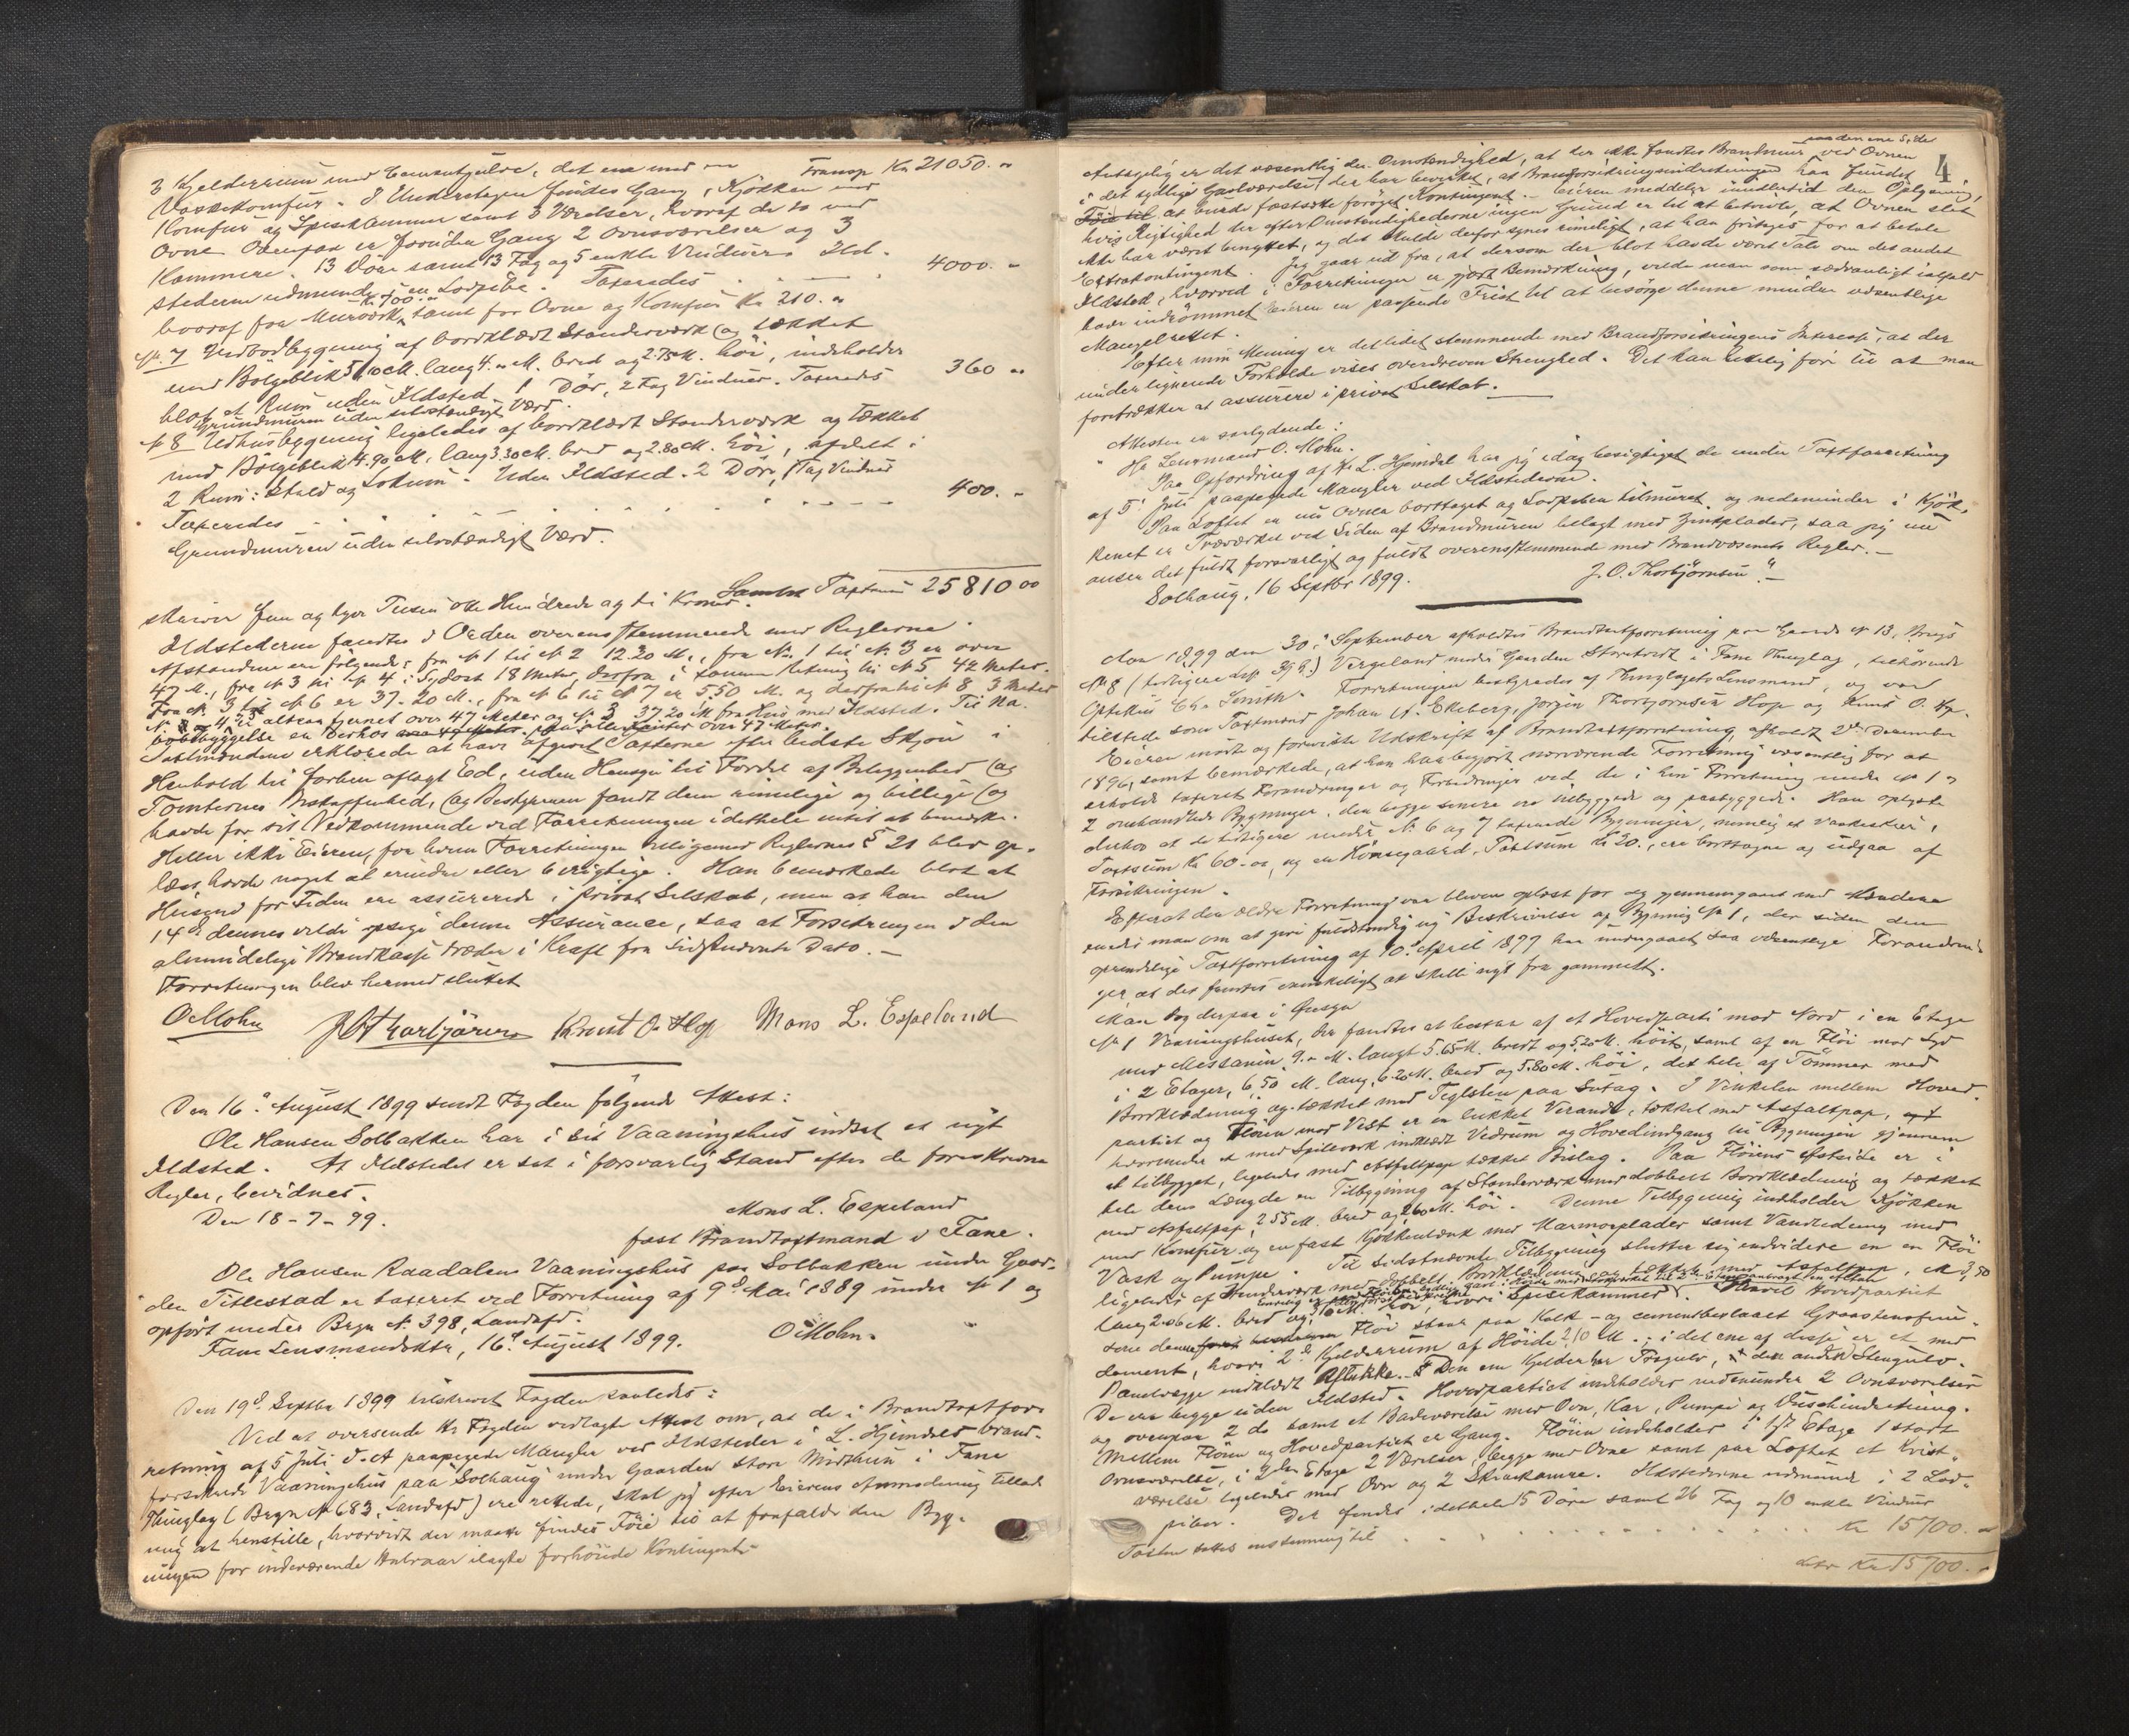 Transp Kr 21050. "
3 Kjelderrum med Cementgulve, det ene med
Vaskekomfur. I Underetagen findes Gang, Kjökken med
Komfur og Spisekammer samt 3 Værelser, hvoraf de to med
Ovne. Ovenpaa er foruden Gang 2 Ovnsværelser og 3
Kammere. 13 Döre samt 13 Fag og 5 enkle Vinduer. Ild-
stederne udmunde i en Lodpibe. Taxeredes 4000. "
hvoraf for Murværk Kr. 700. " samt for Ovne og Komfur Kr 210. "
№ 7 Vedbodbygning af bordklædt Standerværk og tækket
med Bölgeblik 5.10 M. lang 4. " M. bred og 2.75 M. höi, indeholder
blot et Rum uden Ildsted. 1 Dör, 2 Fag Vinduer. Taxeredes 360 "
Grundmuren uden selvstændigt Værd.
№ 8 Udhusbygning ligeledes af bordklædt Standerværk og tækket
med Bölgeblik 4.90 M. lang 3.30 M. bred og 2.80 M. höi, afdelt i
2 Rum: Stald og Lokum. Uden Ildsted. 2 Döre, 1 Fag Vindue
Taxeredes 400. "
Grundmuren uden selvstændigt Værd.
Samlet Taxtsum 25810 00
skriver fem og tyve Tusen otte Hundrede og ti Kroner.
Ildstederne fandtes i Orden overensstemmende med Reglerne.
Afstandene ere fölgende: fra № 1 til № 2 12.20 M., fra № 1 til № 3 er over
47 M., fra № 3 til № 4 i Sydost 18 Meter, derfra i samme Retning til № 5 42 Meter.
Fra № 3 til № 6 er 37.20 M., fra № 6 til № 7 er 5.50 M. og derfra til № 8 3 Meter
№ 4 er altsaa fjernet over 47 Meter og № 3 37.20 M fra Hus med Ildsted. Til Na-
bobebyggelse er derhos paa alle Kanter over 47 Meter.
Taxtmændene erklærede at have afgivet Taxterne efter bedste Skjön i
Henhold til forhen aflagt Ed, uden Hensyn til Fordel af Beliggenhed og
Tomternes Beskaffenhed, og Bestyreren fandt dem rimelige og billige og
havde for sit Vedkommende ved Forretningen idethele intet at bemærke.
Heller ikke Eieren, for hvem Forretningen ifölge Reglernes § 21 blev op-
læst, havde noget at erindre eller berigtige. Han bemærkede blot at
Husene for Tiden ere assurerede i privat Selskab, men at han den
14de dennes vilde opsige denne Assurance, saa at Forsikringen i den
almindelige Brandkasse træder i Kraft fra sidstnævnte Dato.
Forretningen blev hermed sluttet
O Mohn J O Thorbjörnsen Knut O. Hop Mons L. Espeland
Den 16de August 1899 sendt Fogden fölgende Attest:
Ole Hansen Solbakken har i sit Vaaningshus indsat et nyt
Ildsted. At Ildstedet er sat i forsvarlig Stand efter de foreskrevne
Regler, bevidnes.
Den 18-7-99.
Mons L. Espeland
fast Brandtaxtmand i Fane.
Ole Hansen Raadalens Vaaningshus paa Solbakken under Gaar-
den Titlestad er taxeret ved Forretning af 9de Mai 1889 under № 1 og
opfört under Brgn № 398, Landsfd.
Fane Lensmandsktr, 16de August 1899. O Mohn.
Den 19de Septbr 1899 tilskrevet Fogden saaledes:
Ved at oversende Hr Fogden vedlagte Attest om, at de i Brandtaxtfor-
retning af 5 Juli d. A paapegede Mangler ved Ildsteder i L. Hjemdals brand-
forsikrede Vaaningshus paa "Solhaug" under Gaarden Store Midthun i Fane
Thinglag (Brgn № 683, Landsfd) ere rettede, skal jeg efter Eierens Anmodning tillade
mig at henstille, hvorvidt der maatte findes Föie til at frafalde den Byg-
ningen for indeværende Halvaar ilagte forhöiede Kontingent.
4
Antagelig er det væsentlig den Omstændighed, at der ikke fandtes Brandmur ved Ovnen paa den ene Side
i det sydlige Gavlværelse, der har bevirket, at Brandforsikringsindretningen har fundet
at burde fastsætte foröget Kontingent. Eieren meddeler imidlertid den Oplysning,
hvis Rigtighed der efter Omstændighederne ingen Grund er til at betvivle, at Ovnen slet
ikke har været benyttet, og det skulde derfor synes rimeligt, at han fritages for at betale
Extrakontingent. Jeg gaar ud fra, at dersom der blot havde været Tale om det andet
Ildsted, hvorved i Forretningen er gjort Bemærkning, vilde man som sædvanligt ialfald
have indrömmet Eieren en passende Frist til at besörge denne mindre væsentlige
Mangel rettet.
Efter min Mening er det lidet stemmende med Brandforsikringens Interesse, at der
under lignende Forholde vises overdreven Strenghed. Det kan letelig före til at man
foretrækker at assurere i privat Selskab.
Attesten er saalydende:
" Hr Lensmand O. Mohn.
Paa Opfordring af Hr L. Hjemdal har jeg idag besigtiget de under Taxtforretning
af 5. Juli paapegede Mangler ved Ildstederne.
Paa Loftet er nu Ovnen borttaget og Lodpiben tilmuret og nedenunder i Kjök-
kenet er Træværket ved Siden af Brandmuren belagt med Zinkplader, saa jeg nu
anser det fuldt forsvarligt og fuldt overensstemmende med Brandvæsenets Regler.
Solhaug, 16 Septbr 1899. J. O. Thorbjörnsen "
Aar 1899 den 30. September afholdtes Brandtaxtforretning paa Gaards № 13, Brugs
№ 8 (tidligere 39 B.) Vergeland under Gaarden Storetveit i Fane Thinglag, tilhörende
Optikus Chr. Smith. Forretningen bestyredes af Thinglagets Lensmand, og var
tilstede som Taxtmænd Johan A. Ekeberg, Jörgen Thorbjörnsen Hop og Knut O. Hp.
Eieren mödte og foreviste Udskrift af Brandtaxtforretning, afholdt 2den December
1896, samt bemærkede, at han har begjært nærværende Forretning væsentlig for at
erholde taxeret Forandringer og Forbedringer ved de i hin Forretning under № 1 "
2 omhandlede Bygninger, der begge senere ere tilbyggede og paabyggede. Han oplyste
derhos at de tidligere under № 6 og 7 taxerede Bygninger, nemlig et Vaskeskur,
Taxtsum Kr 60. oo, og en Hönsegaard, Taxtsum Kr 20., ere borttagne og udgaa af
Forsikringen.
Efterat den ældre Forretning var bleven oplæst for og gjennemgaaet med Mændene
enedes man om at give fuldstændig ny Beskrivelse af Bygning № 1, der siden den
oprindelige Taxtforretning af 10. April 1877 har undergaaet saa væsentlige Forandrin-
ger, at det fandtes vanskeligt at skille nyt fra gammelt.
Man tog derpaa i Øiesyn
№ 1 Vaaningshuset, der fandtes at bestaa af et Hovedparti mod Nord i en Etage
med Messanin, 9. " M. langt 5.65 M. bredt og 5.20 M. höit, samt af en Flöi mod Syd
i 2 Etager, 6.50 M. lang, 6.20 M. bred og 5.80 M. höi, det hele af Tömmer med
Bordklædning og tækket med Teglsten paa Sutag. I Vinkelen mellem Hoved-
partiet og Flöien mod Vest er en lukket Veranda, tækket med Asfaltpap,
hvorunder et med Spileværk indklædt Vedrum og Hovedindgang til Bygningen gjennem
et tilbygget, ligeledes med Asfaltpap tækket Bislag. Paa Flöiens Østside er i
hele dens Længde en Tilbygning af Standerværk med dobbelt Bordklædning og tækket
med Asfaltpap, 2.55 M. bred og 2.60 M. höi. Denne Tilbygning indeholder Kjökken
med Komfur og en fast Kjökkenbænk med Marmorplader samt Vandledning med
Vask og Pumpe. Til sidstnævnte Tilbygning slutter sig endvidere en Flöi
ligeledes af Standerværk med dobbelt Bordklædning og tækket med Asfaltpap, M 3,50
lang 2.06 M. bred og höi, hvori Spisekammer. Saavel Hovedpartiet
som denne Flöi staar paa Kalk- og cementberlaaet Graastensfun-
dament, hvori 2de Kjelderrum af Höide 2.10 M.; i det ene af disse er et med
Panelvægge indklædt Aflukke. Den ene Kjelder har Trægulv, den anden Stengulv.
De ere begge uden Ildsted. Hovedpartiet indeholder nedenunder 2 Ovnsværelser
og ovenpaa 2 do samt et Badeværelse med Ovn, Kar, Pumpe og Duschindretning.
Mellem Flöien og Hovedpartiet er Gang. Flöien indeholder i 1ste Etage 1 stort
Ovnsværelse, i 2den Etage 2 Værelser, begge med Ovne samt paa Loftet et Kvist-
værelse ligeledes med Ovn og 2 Skraakamre. Ildstederne udmunde i 2 Lod-
piber. Der findes idethele 15 Döre samt 26 Fag og 10 enkle Vinduer
Taxten sattes enstemmig til Kr 15700. "
Latr Kr 15700. "